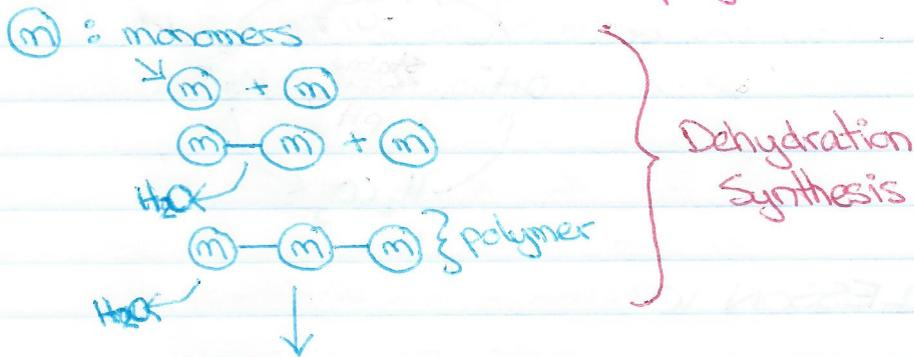 m : monomers
m + m
m — m + m
H₂O
m — m — m } polymer
H₂O
Dehydration
Synthesis